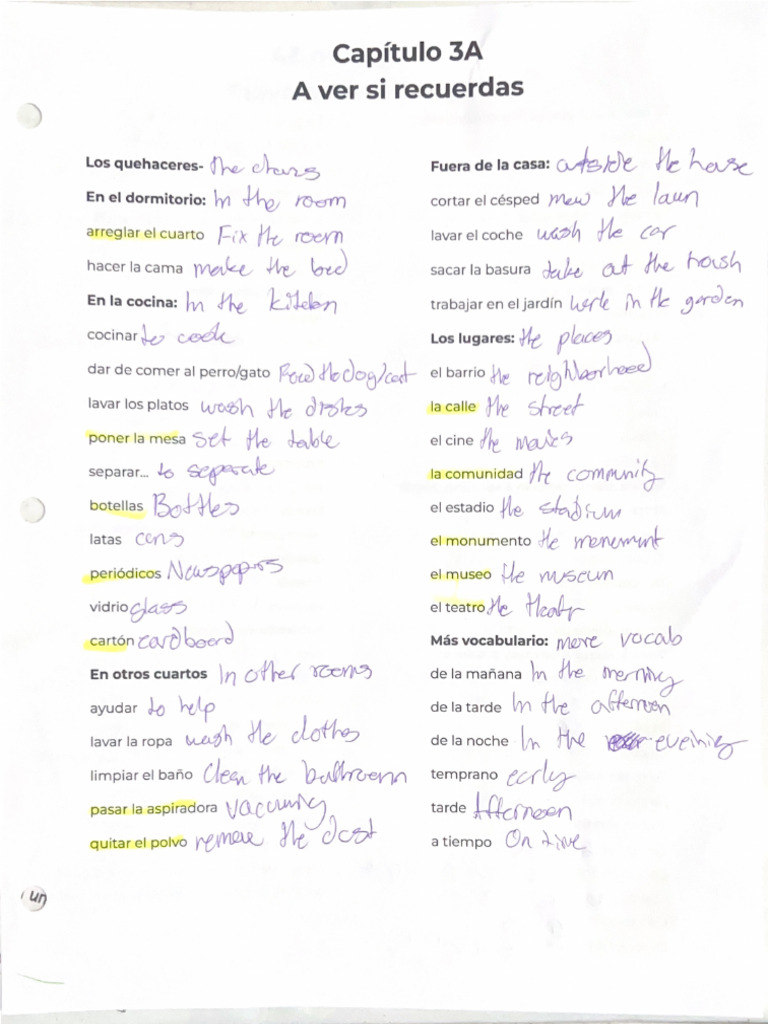 Capítulo 3A
A ver si recuerdas
Los quehaceres- The chors
En el dormitorio: In the room
arreglar el cuarto Fix the room
hacer la cama make the bed
En la cocina: In the kitchen
cocinar to cook
dar de comer al perro/gato Feed the dog/cat
lavar los platos wash the dishes
poner la mesa set the table
separar... to separate
botellas Bottles
latas cans
periódicos Newspapers
vidrio glass
cartón cardboard
En otros cuartos In other rooms
ayudar to help
lavar la ropa wash the clothes
limpiar el baño Clean the bathroom
pasar la aspiradora vacuuming
quitar el polvo remove the dust
Fuera de la casa: outside the house
cortar el césped mow the lawn
lavar el coche wash the car
sacar la basura take out the trash
trabajar en el jardín work in the garden
Los lugares: the places
el barrio the neighborhood
la calle the street
el cine the movies
la comunidad the community
el estadio the stadium
el monumento the monument
el museo the museum
el teatro the theatr
Más vocabulario: more vocab
de la mañana In the morning
de la tarde In the afternoon
de la noche In the evening
temprano early
tarde Afternoon
a tiempo On time
un